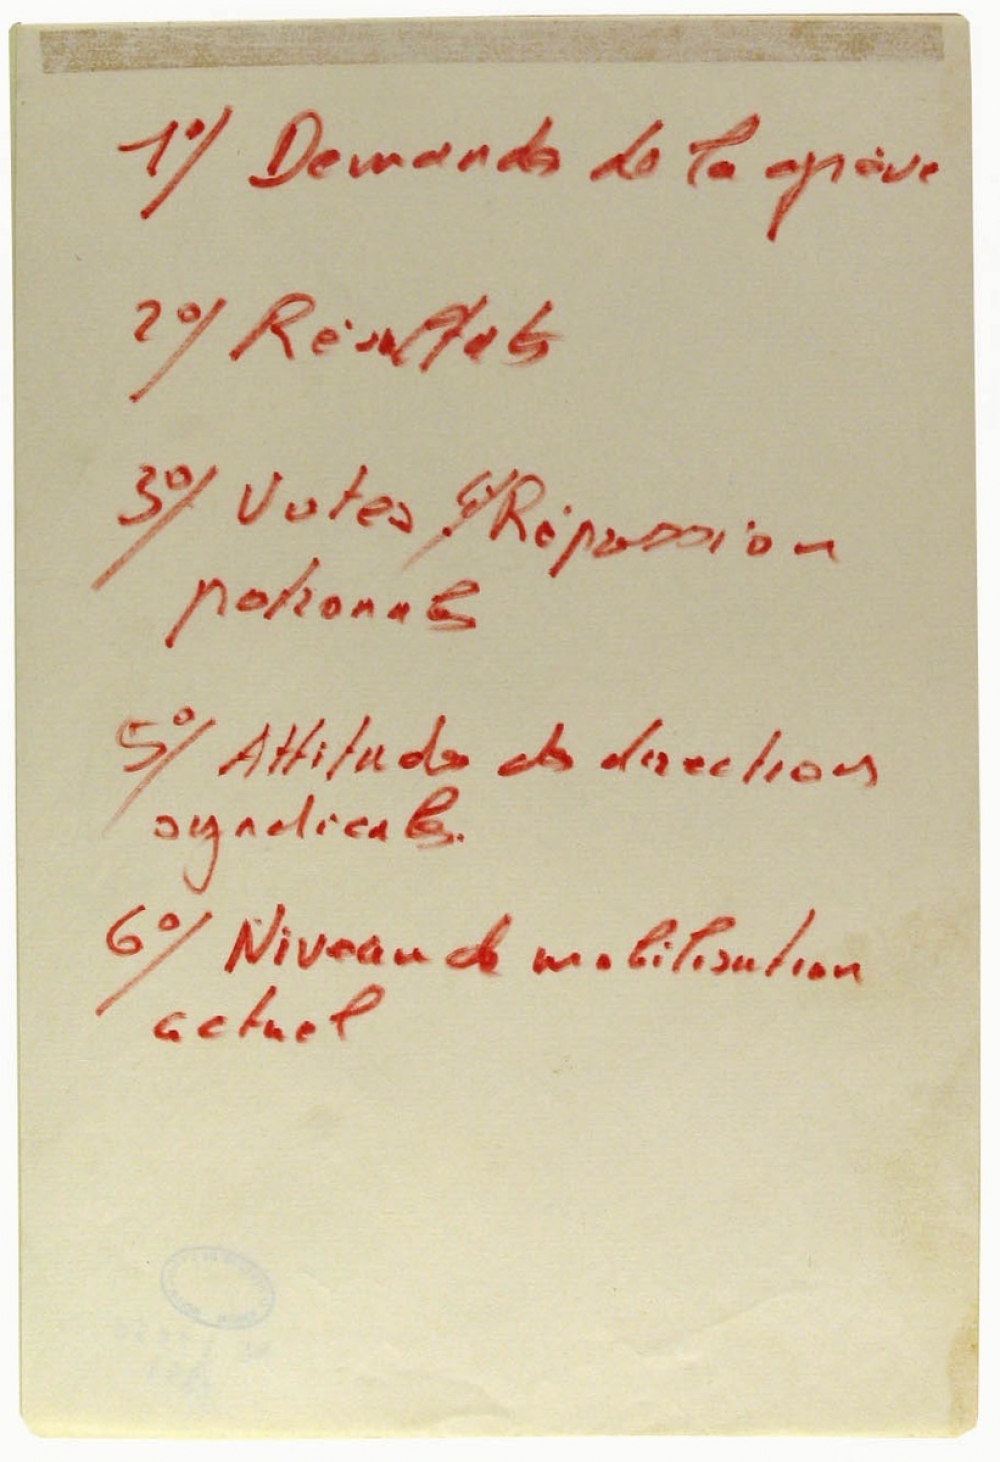 1°/ Demande de la grève
2°/ Résultats
3°/ Votes 4°/ Répression
patronales
5°/ Attitude des directions
syndicales.
6°/ Niveau de mobilisation
actuel